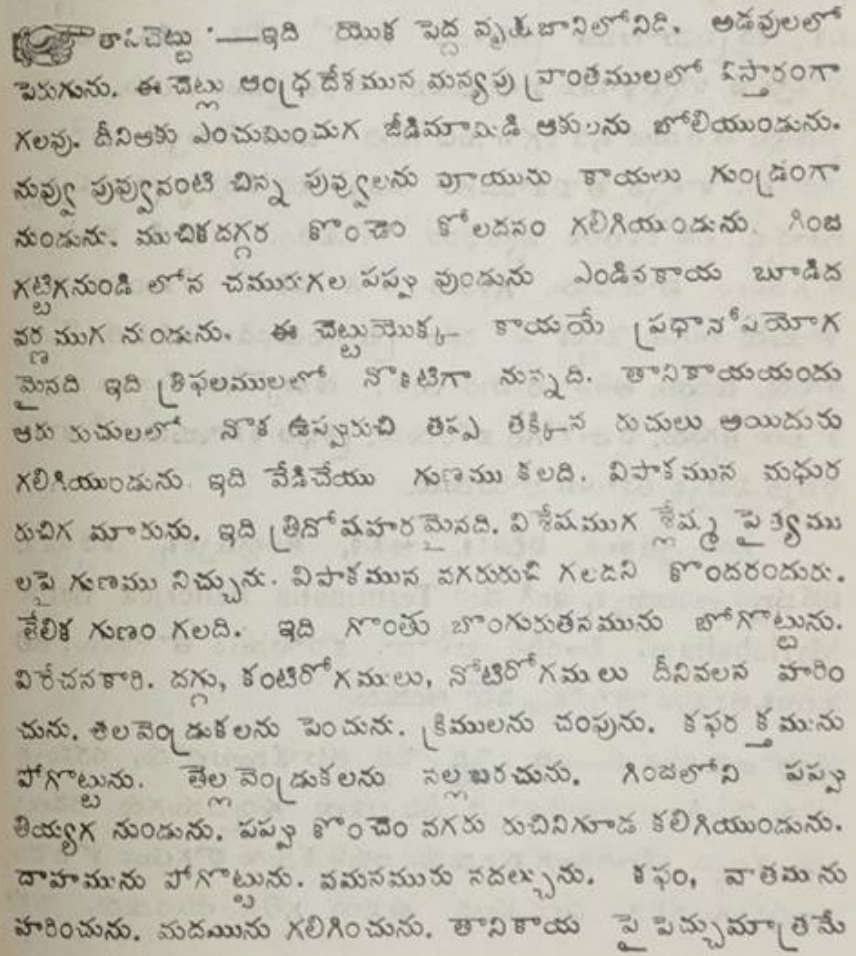 తానిచెట్టు :—ఇది యొక పెద్ద వృక్షజాతిలోనిది. అడవులలో
పెరుగును. ఈ చెట్లు ఆంధ్రదేశమున మన్యపు ప్రాంతములలో విస్తారంగా
గలవు. దీనిఆకు ఎంచుమించుగ జీడిమామిడి ఆకులను బోలియుండును.
నువ్వు పువ్వువంటి చిన్న పువ్వులను పూయును కాయలు గుండ్రంగా
నుండును. ముచికదగ్గర కొంచెం కోలదనం గలిగియుండును. గింజ
గట్టిగనుండి లోన చమురుగల పప్పు వుండును ఎండినకాయ బూడిద
వర్ణముగ నుండును. ఈ చెట్టుయొక్క కాయయే ప్రధానోపయోగ
మైనది ఇది త్రిఫలములలో నొకటిగా నున్నది. తానికాయయందు
ఆరు రుచులలో నొక ఉప్పురుచి తప్ప తక్కిన రుచులు అయిదును
గలిగియుండును ఇది వేడిచేయు గుణము కలది. విపాకమున మధుర
రుచిగ మారును. ఇది త్రిదోషహరమైనది. విశేషముగ శ్లేష్మ పైత్యము
లపై గుణము నిచ్చును. విపాకమున వగరురుచి గలదని కొందరందురు.
తేలిక గుణం గలది. ఇది గొంతు బొంగురుతనమును బోగొట్టును.
విరేచనకారి. దగ్గు, కంటిరోగములు, నోటిరోగములు దీనివలన హరిం
చును. తలవెండ్రుకలను పెంచును. క్రిములను చంపును. కఫరక్తమును
పోగొట్టును. తెల్లవెండ్రుకలను నల్లబరచును. గింజలోని పప్పు
తియ్యగ నుండును. పప్పు కొంచెం వగరు రుచినిగూడ కలిగియుండును.
దాహమును పోగొట్టును. వమనమును నదల్చును. కఫం, వాతమును
హరించును. మదమును గలిగించును. తానికాయ పై పెచ్చుమాత్రమే